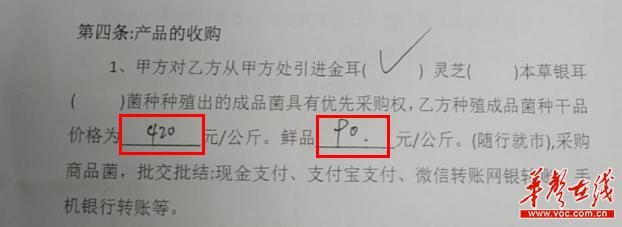 第四条:产品的收购
1、甲方对乙方从甲方处引进金耳( ✓ ) 灵芝( )本草银耳
( )菌种种殖出的成品菌具有优先采购权，乙方种殖成品菌种干品
价格为 420 元/公斤。鲜品 90. 元/公斤。(随行就市),采购
商品菌，批交批结:现金支付、支付宝支付、微信转账网银转账、手
机银行转账等。
华声在线
www.voc.com.cn